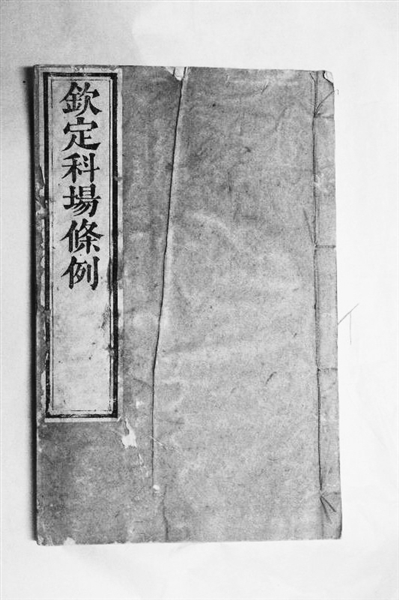 欽定科場條例